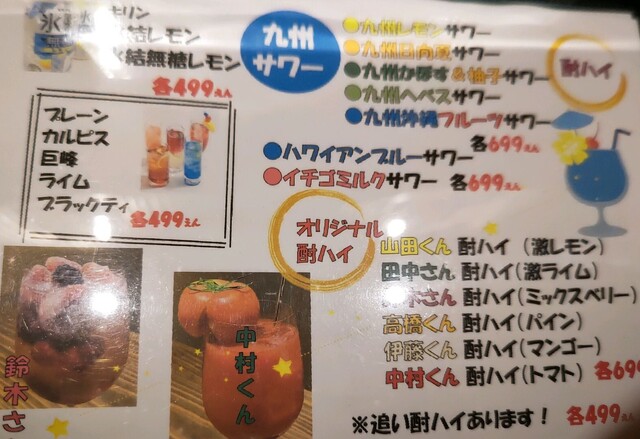 氷
キリン
氷結レモン
氷結無糖レモン
各499えん
九州
サワー
九州レモンサワー
九州日向夏サワー
九州かぼす&柚子サワー
九州ヘベスサワー
九州沖縄フルーツサワー
各699えん
酎ハイ
プレーン
カルピス
巨峰
ライム
ブラックティ
各499えん
ハワイアンブルーサワー
イチゴミルクサワー 各699えん
オリジナル
酎ハイ
山田くん 酎ハイ (激レモン)
田中さん 酎ハイ(激ライム)
木さん 酎ハイ(ミックスベリー)
高橋くん 酎ハイ(パイン)
伊藤くん 酎ハイ(マンゴー)
中村くん 酎ハイ(トマト) 各69
※追い酎ハイあります! 各499えん
鈴木さ
中村くん